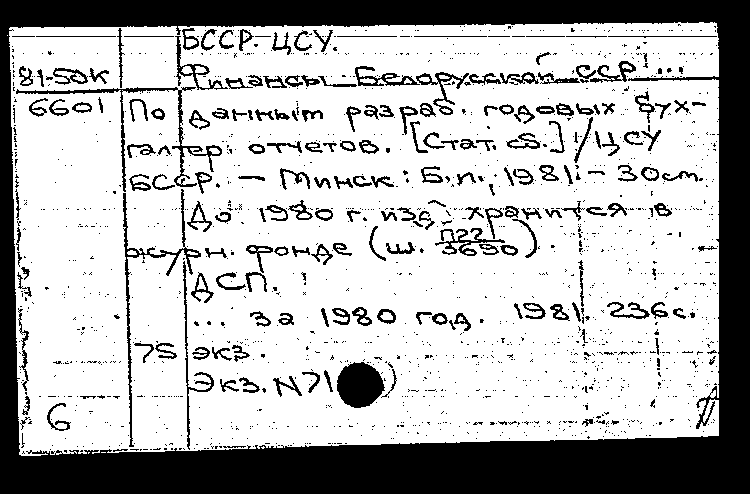 БССР. ЦСУ.
81-5ДК Финансы Белорусской ССР ...
6601 По данным разраб. годовых бух-
галтер. отчетов. [Стат. сб.] / ЦСУ
БССР. — Минск : Б.и., 1981. – 30см.
До 1980 г. изд. хранится в
журн. фонде (ш. П22/3690).
ДСП.
... за 1980 год. 1981. 236с.
75 экз.
Экз. N71
6